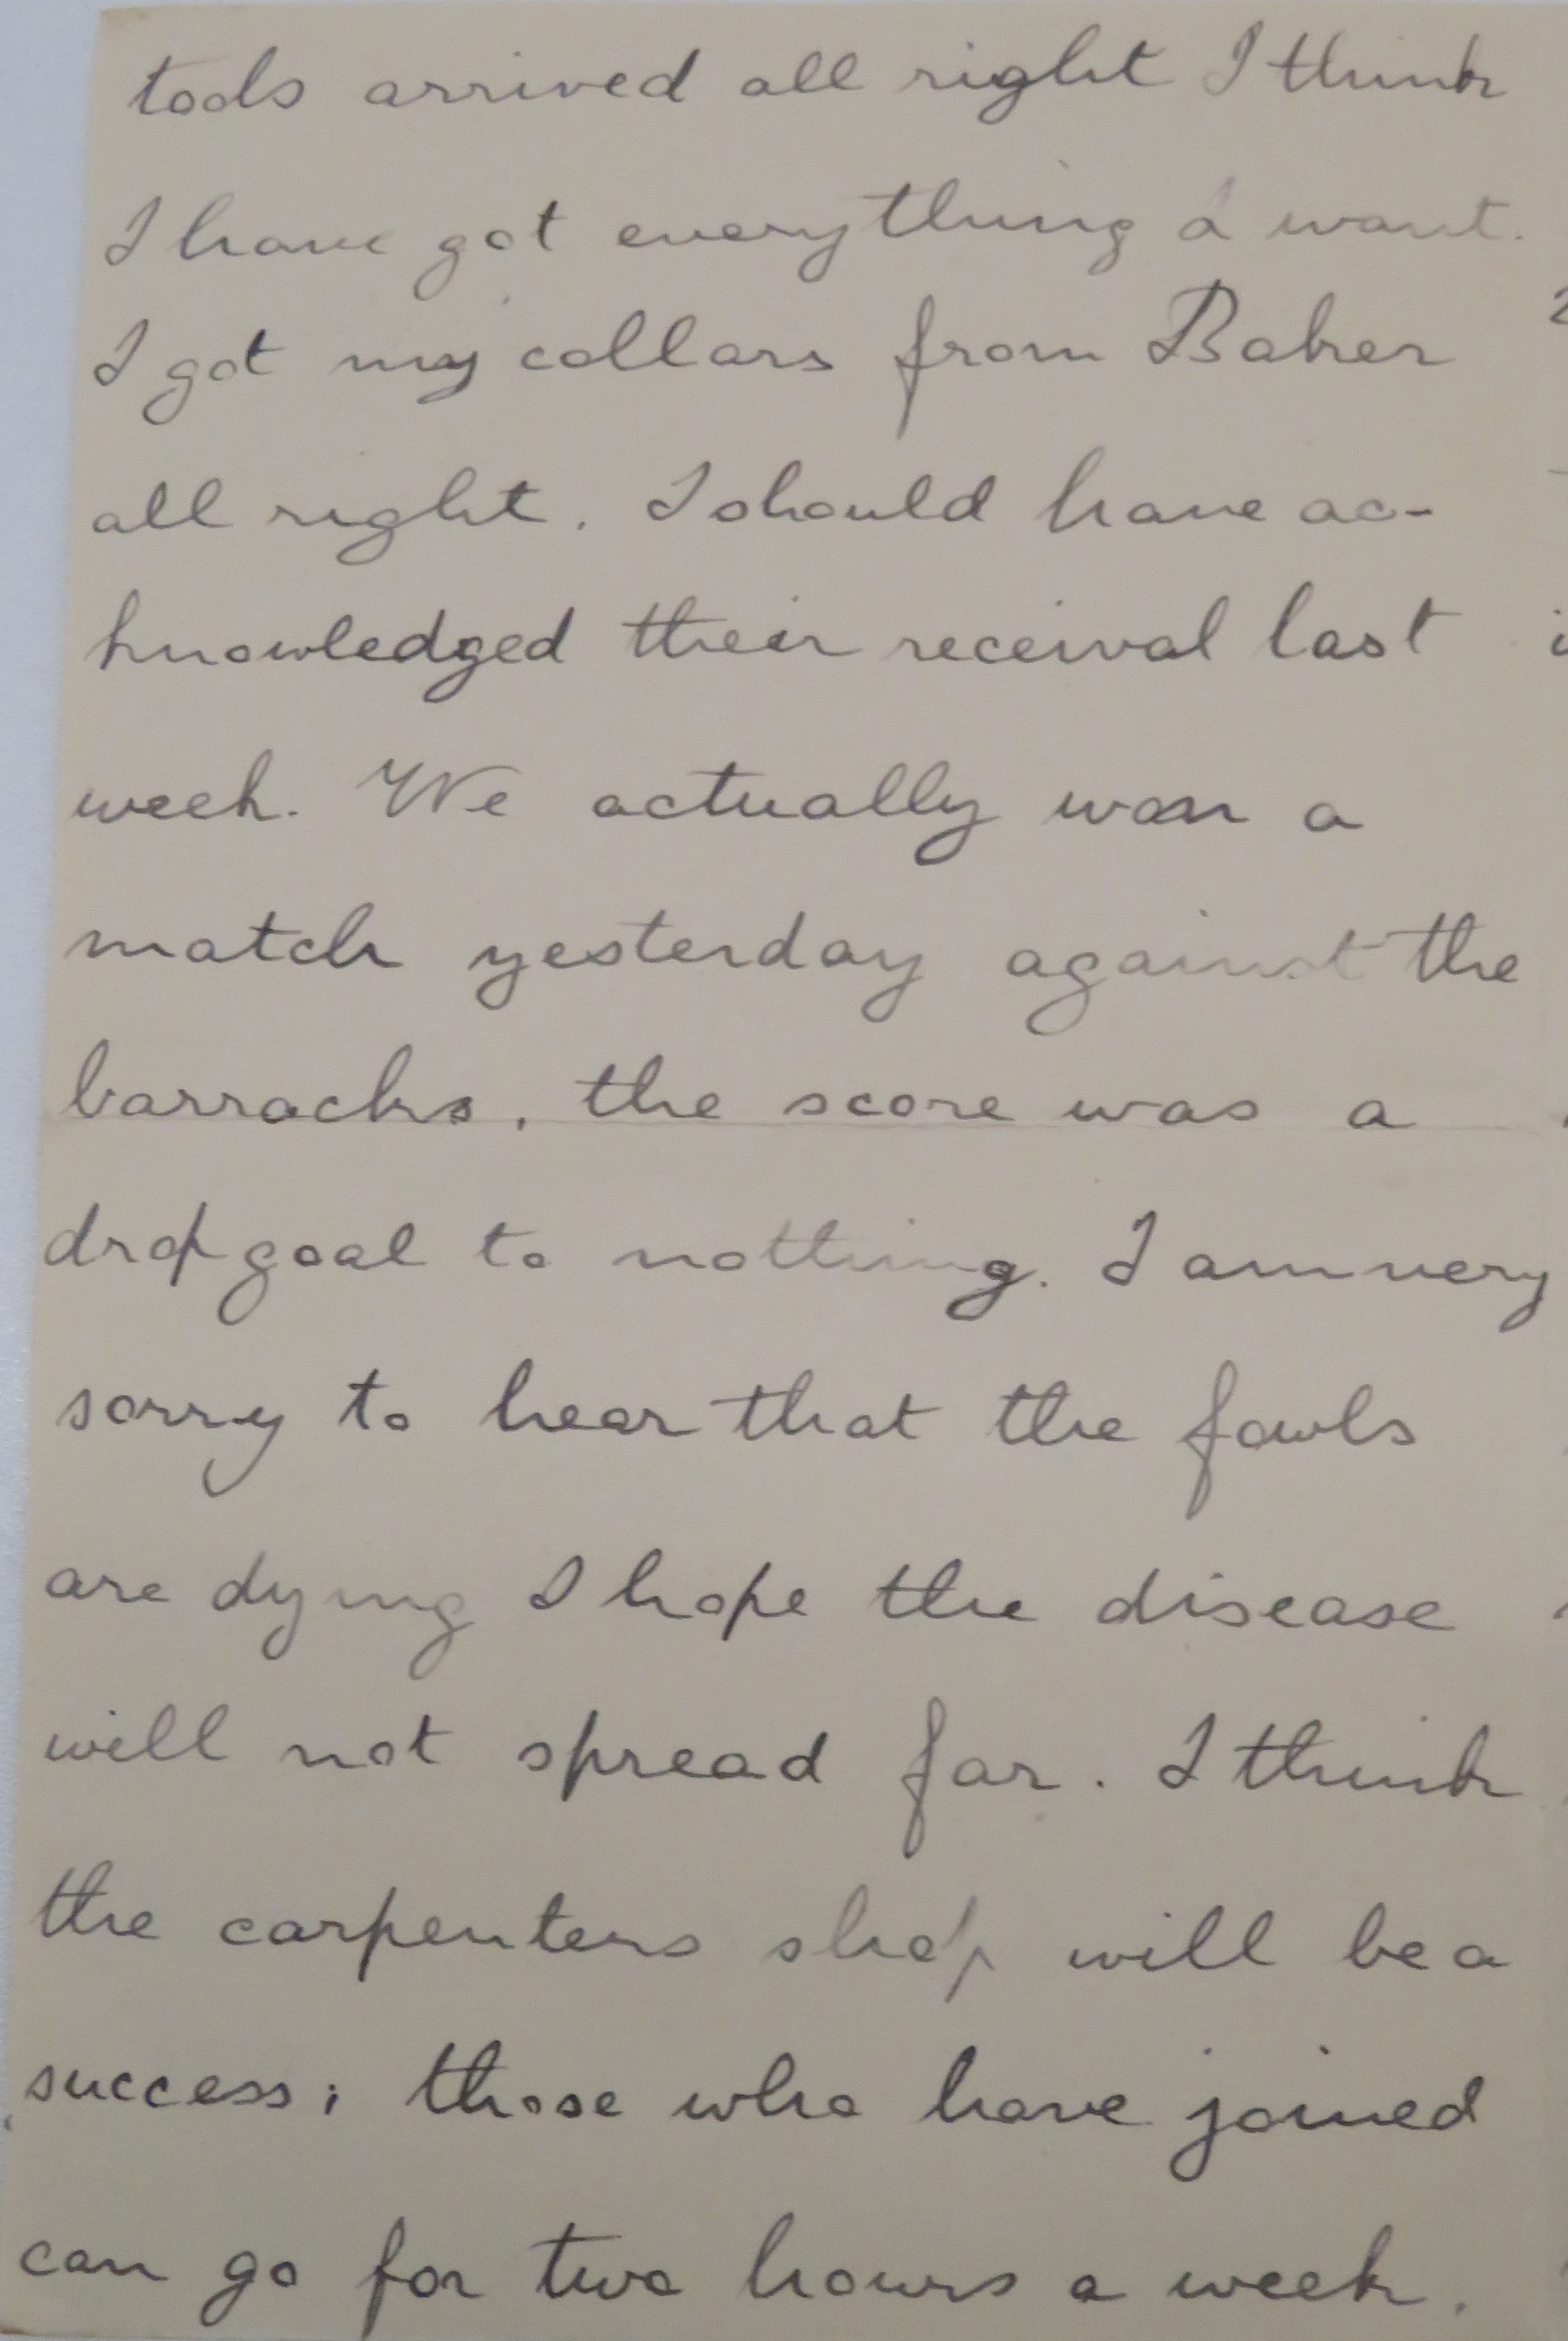 tools arrived all right I think
I have got everything I want.
I got my collars from Baker
all right. I should have ac-
knowledged their receival last
week. We actually won a
match yesterday against the
barracks, the score was a
drop goal to nothing. I am very
sorry to hear that the fowls
are dying I hope the disease
will not spread far. I think
the carpenters shop will be a
success; those who have joined
can go for two hours a week.